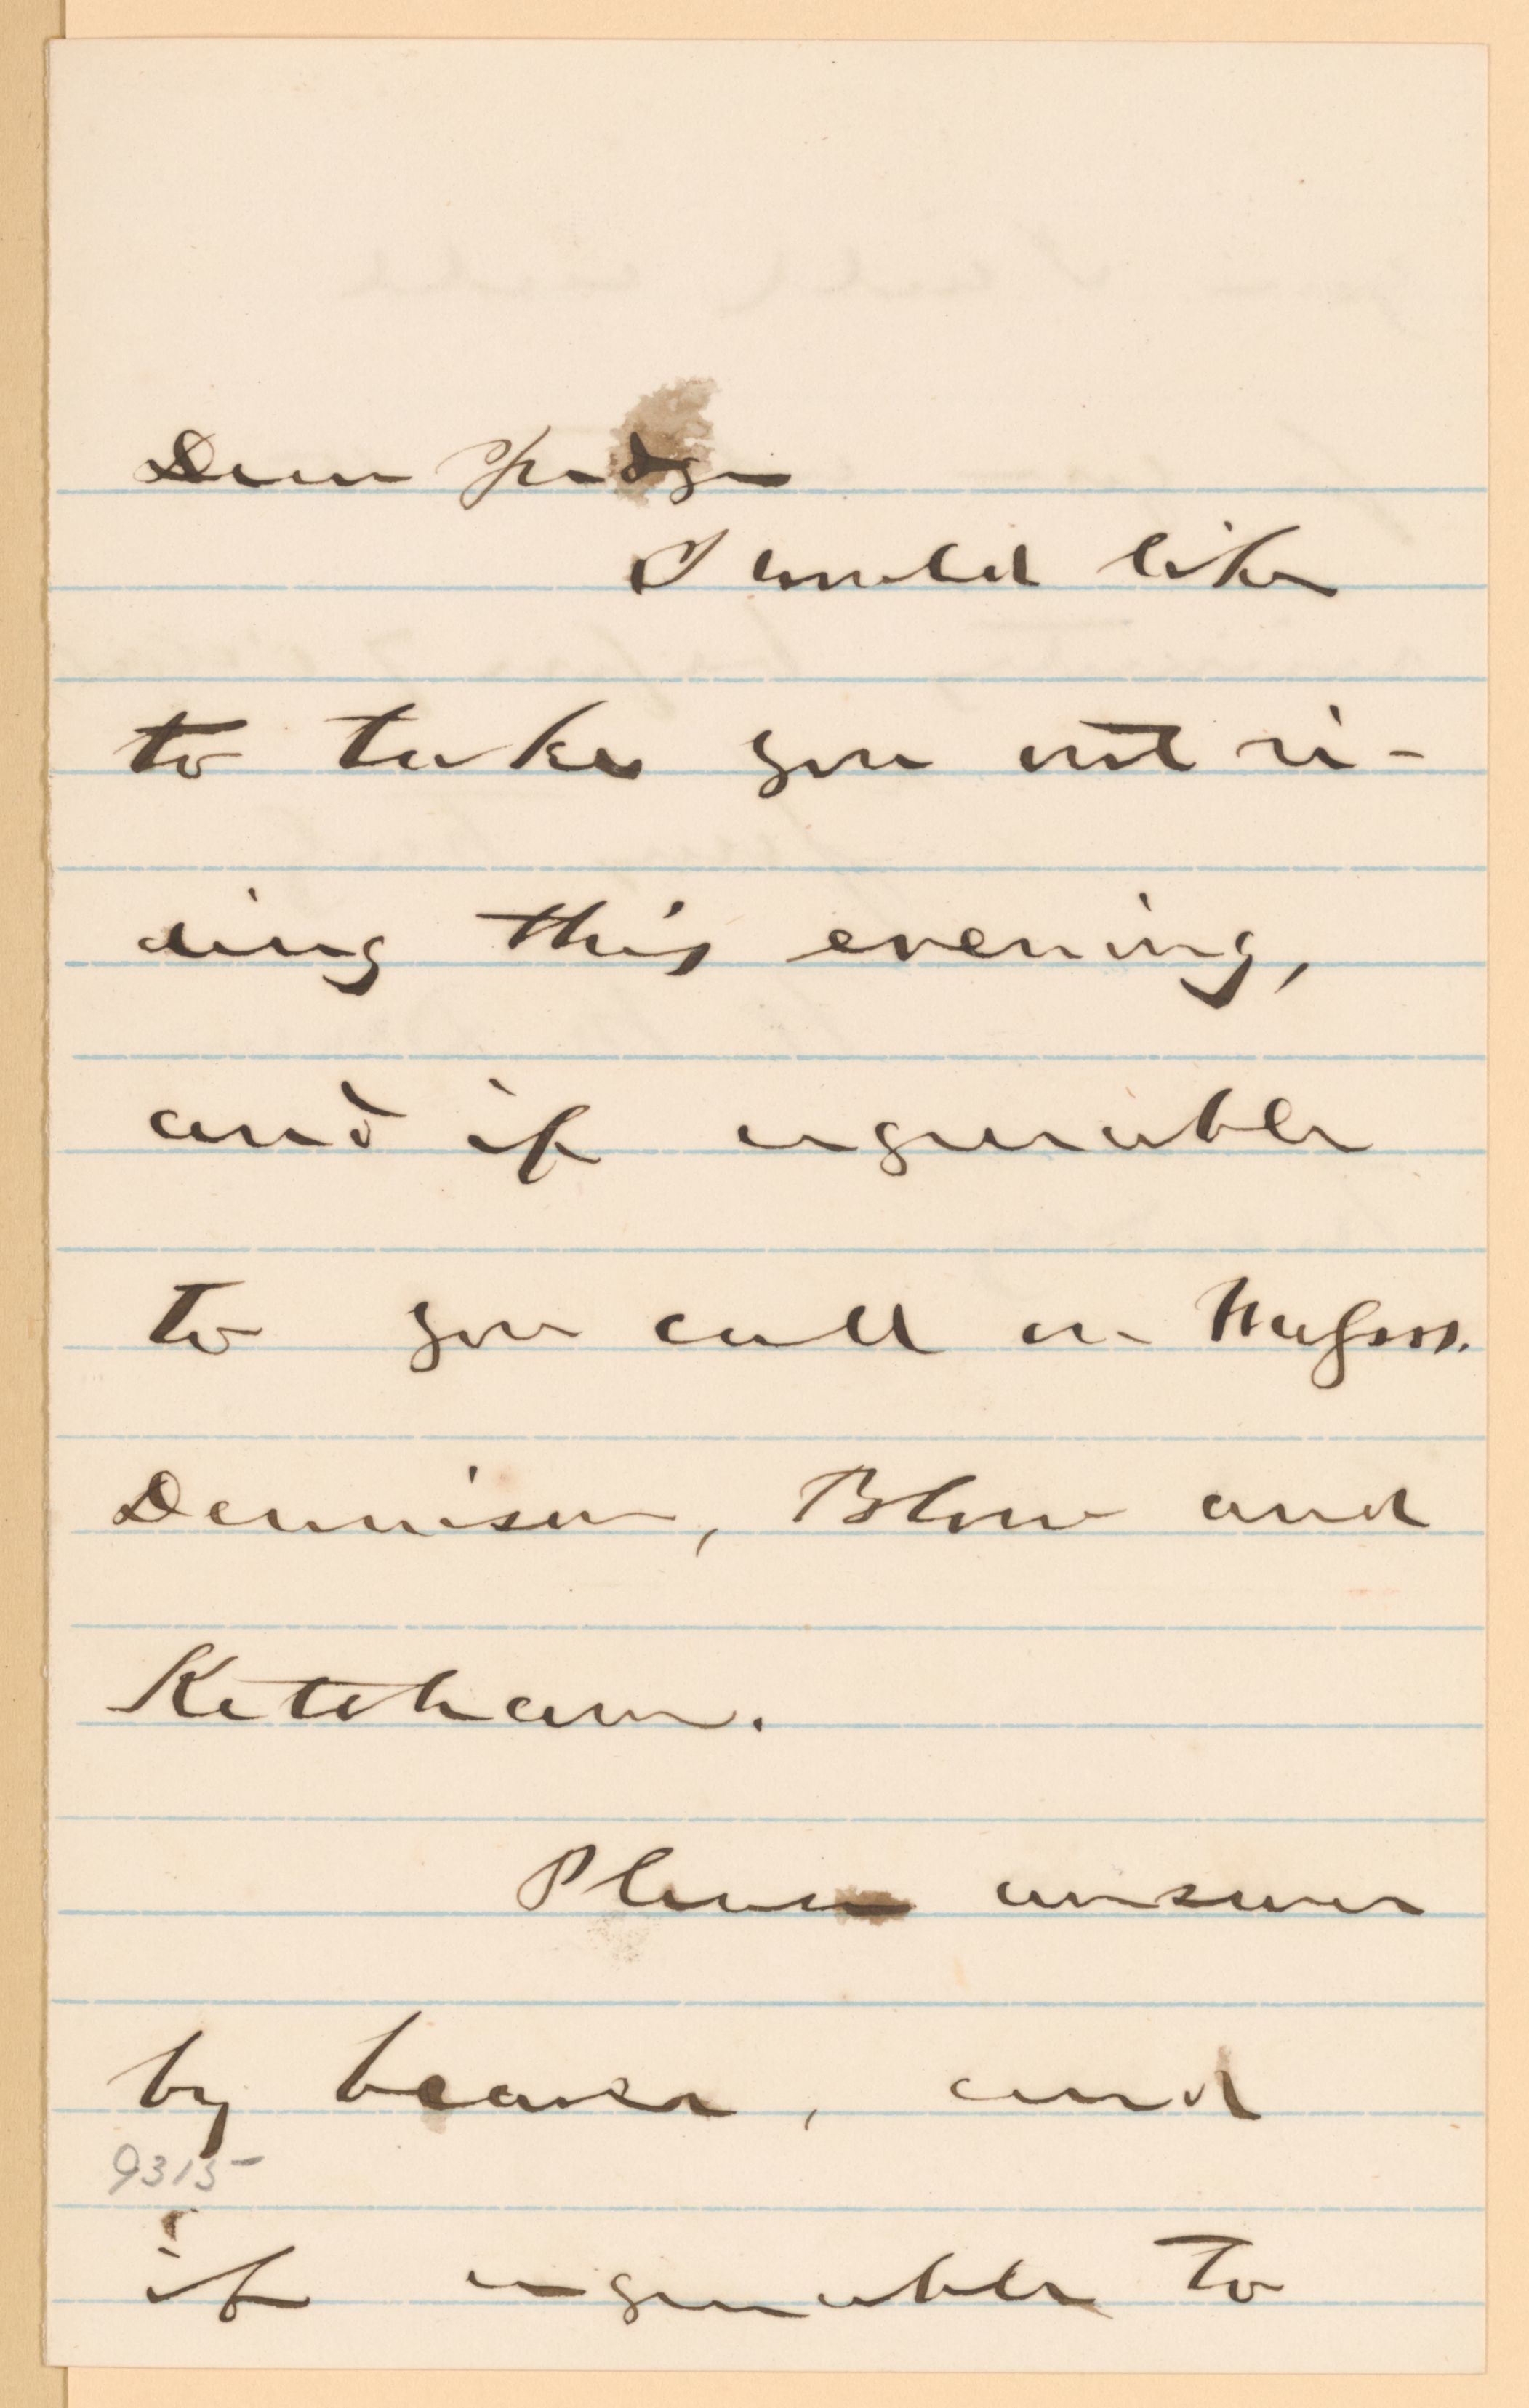 Dear Judge
I would like
to take you out ri-
ding this evening,
and if agreeable
to you call on Messrs.
Dennison, Blow and
Ketcham.
Please answer
by bearer, and
9315
if agreeable to